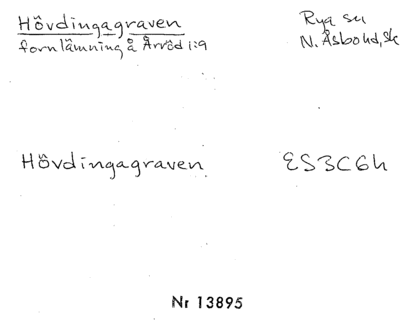 Hövdingagraven
fornlämning å Årröd 1:9
Rya sn
N. Åsbohd, Sk
Hövdingagraven
ES3C6h
Nr 13895